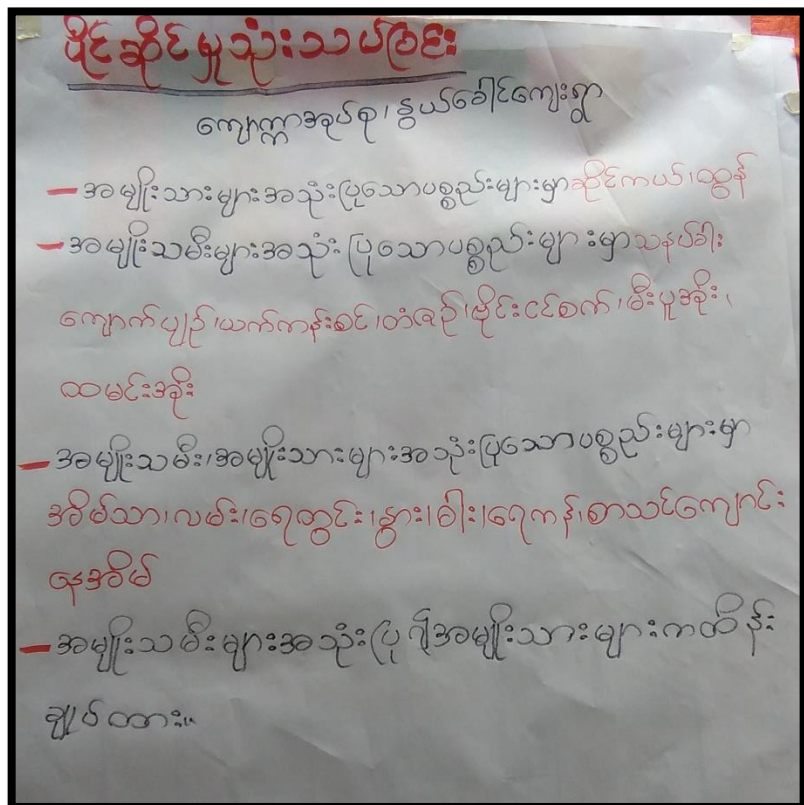 ပိုင်ဆိုင်မှုသုံးသပ်ခြင်း
ကျောက္ကာအုပ်စု၊ နွယ်ခေါင်ကျေးရွာ
– အမျိုးသားများအသုံးပြုသောပစ္စည်းများမှာဆိုင်ကယ်၊ထွန်
– အမျိုးသမီးများအသုံးပြုသောပစ္စည်းများမှာသနပ်ခါး
ကျောက်ပျဉ်၊ယက်ကန်းစင်၊တံစဉ်၊ဗိုင်းငင်စက်၊မီးပူအိုး၊
ထမင်းအိုး
– အမျိုးသမီး၊အမျိုးသားများအသုံးပြုသောပစ္စည်းများမှာ
အိမ်သာ၊လမ်း၊ရေတွင်း၊နွား၊ဓါး၊ရေကန်၊စာသင်ကျောင်း
နေအိမ်
– အမျိုးသမီးများအသုံးပြု၍အမျိုးသားများကထိန်း
ချုပ်ထား။